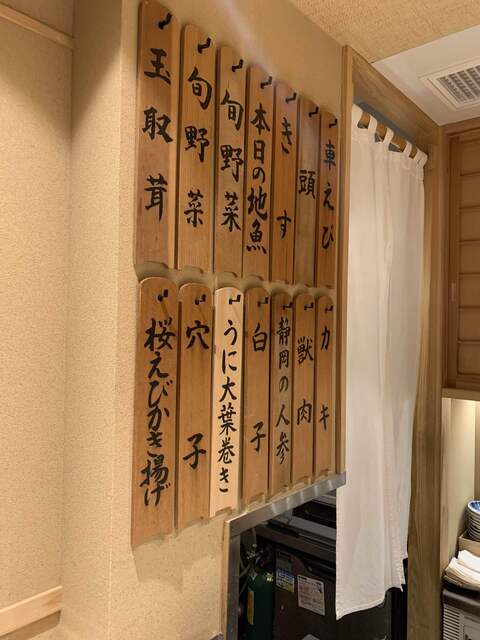 車えび
頭
きす
本日の地魚
旬野菜
旬野菜
玉取茸
カキ
獣肉
静岡の人参
白子
うに大葉巻き
穴子
桜えびかき揚げ